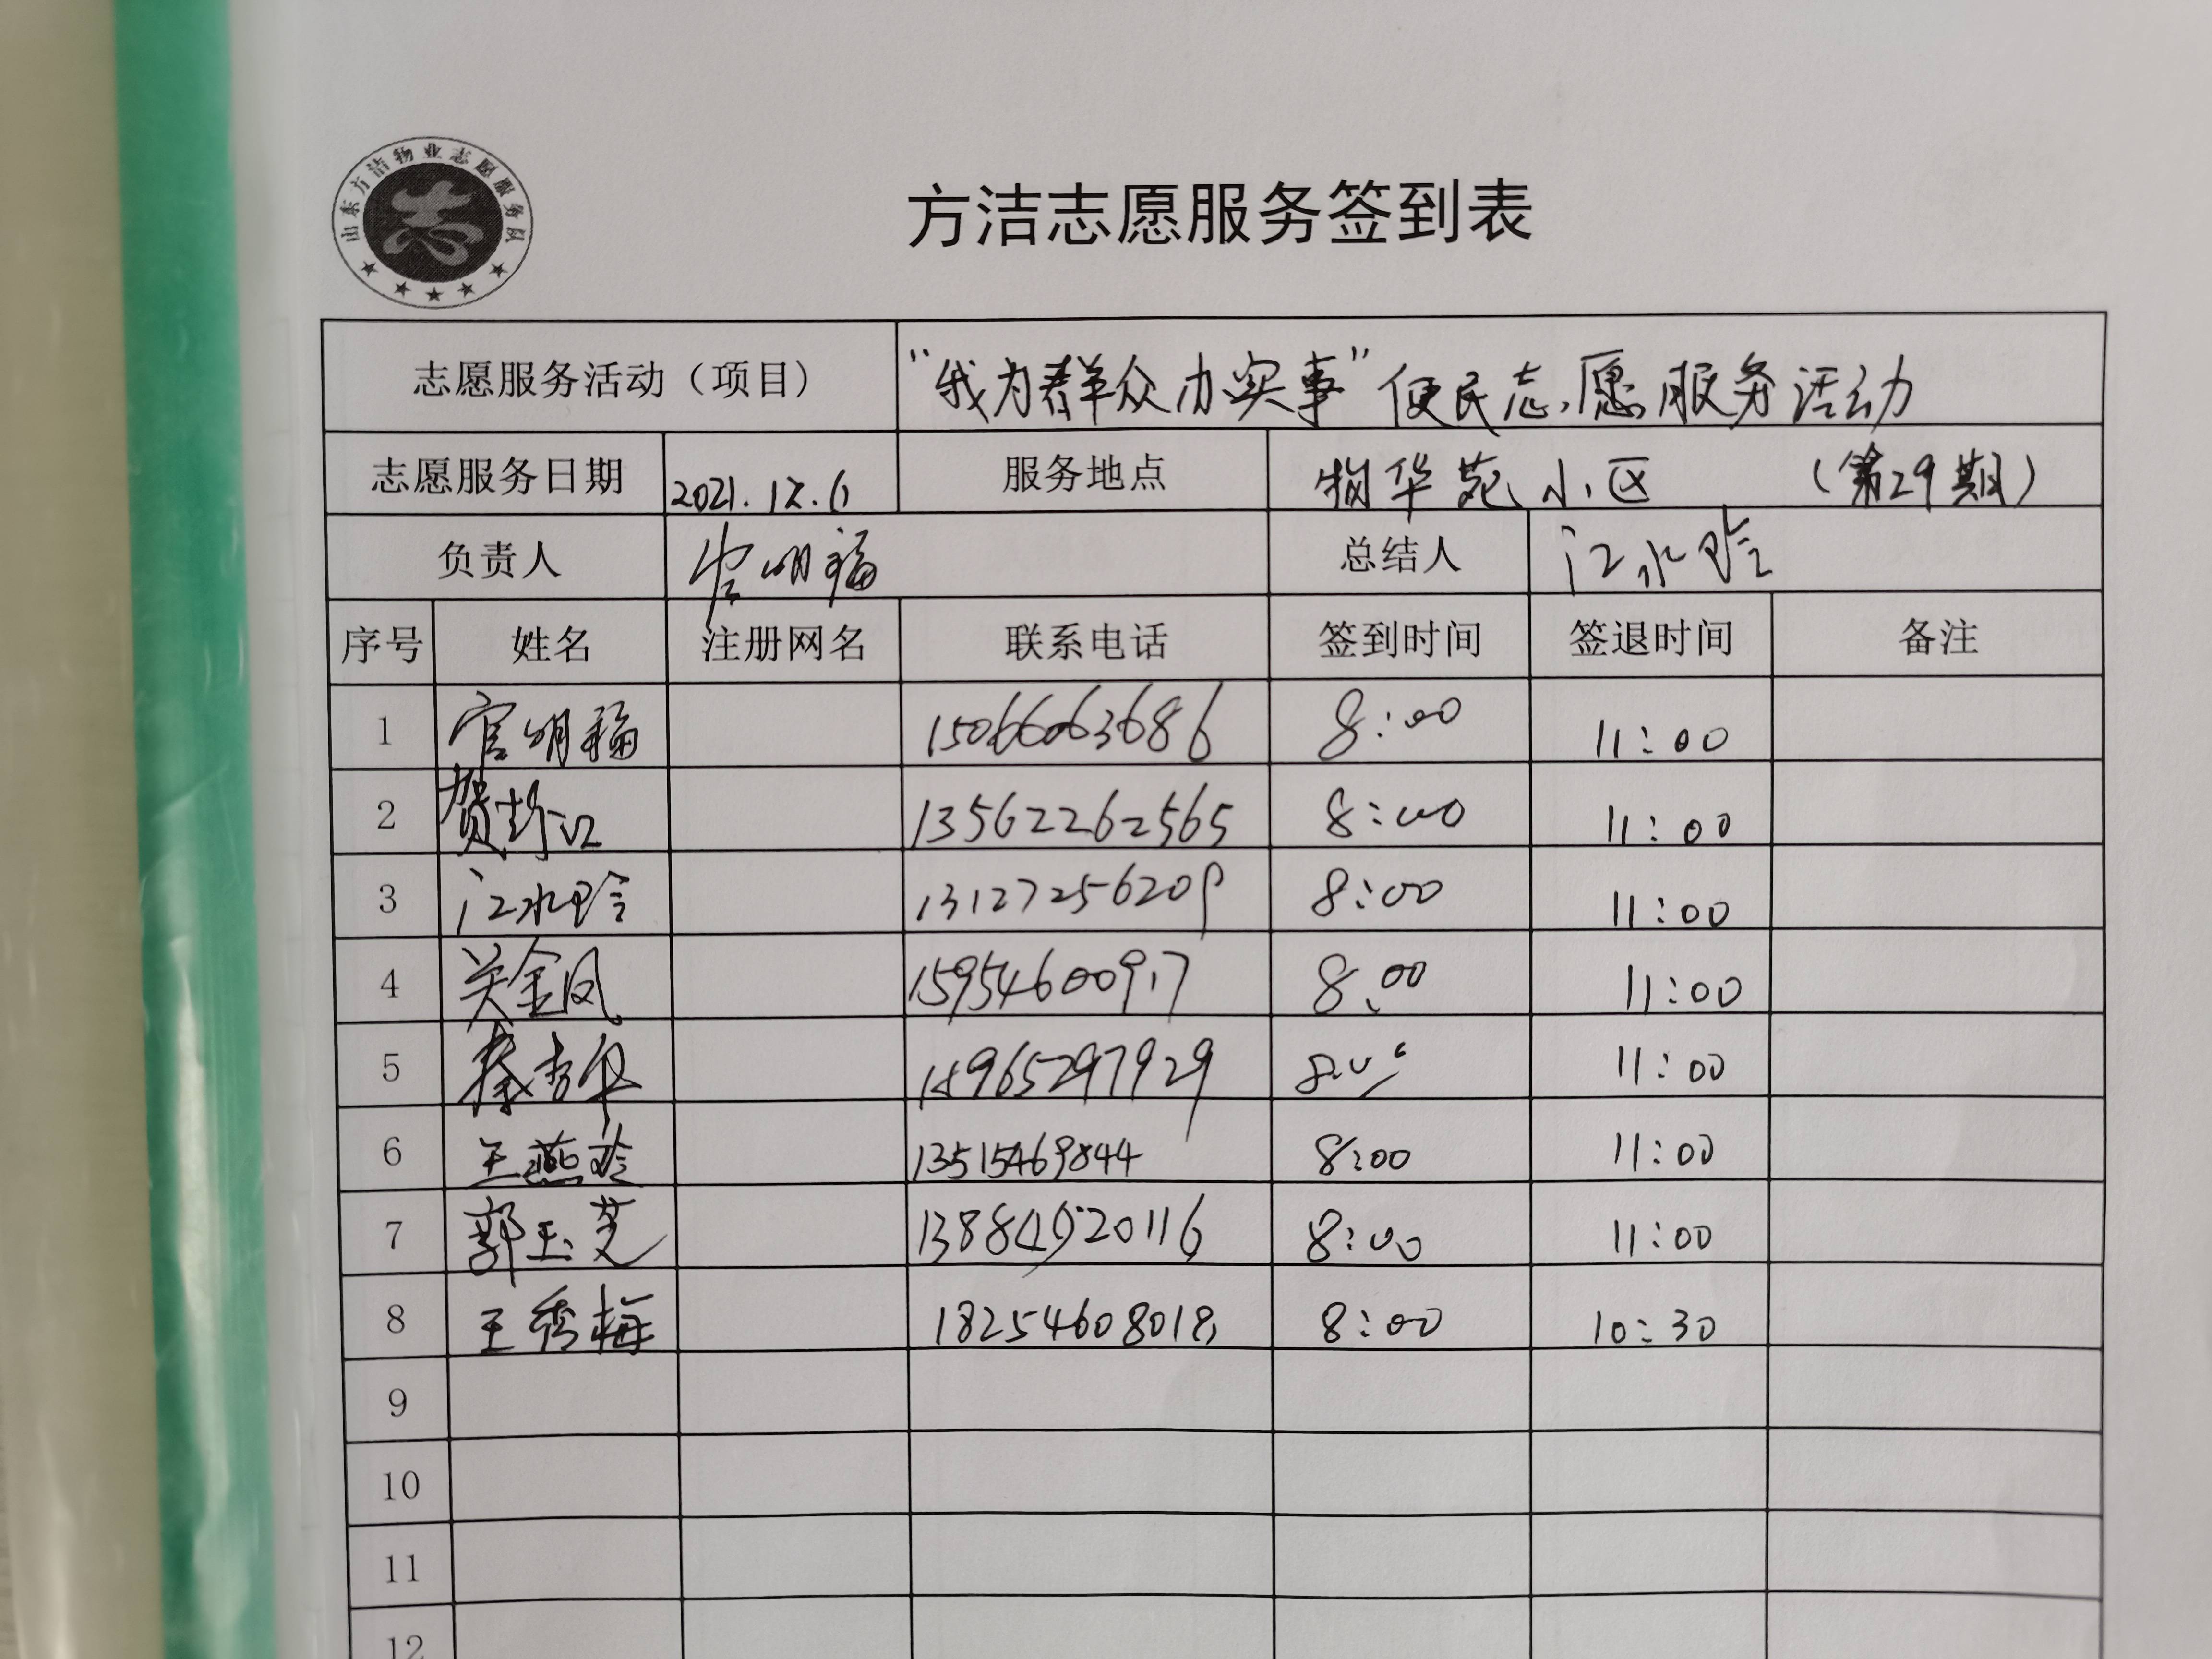 山东方洁物业志愿服务队
方洁志愿服务签到表
志愿服务活动（项目） "我为群众办实事"便民志愿服务活动
志愿服务日期 2021.12.6 服务地点 物华苑小区 （第29期）
负责人 官明福 总结人 江水玲
序号 姓名 注册网名 联系电话 签到时间 签退时间 备注
1 官明福 15066063686 8:00 11:00
2 13562262565 8:00 11:00
3 江水玲 13127256209 8:00 11:00
4 关金凤 15954600917 8:00 11:00
5 秦秀华 15965297929 8:00 11:00
6 王燕玲 13515469844 8:00 11:00
7 郭玉芝 13884920116 8:00 11:00
8 王秀梅 18254608018 8:00 10:30
9
10
11
12